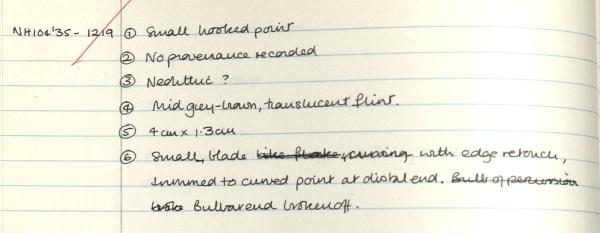 NH104'35 - 1219 ① Small hooked point
② No provenance recorded
③ Neolithic ?
④ Mid grey-brown, translucent flint.
⑤ 4cm x 1.3cm
⑥ Small, blade like flake, curving with edge retouch,
trimmed to curved point at distal end. Bulb of percussion
broke Bulbar end broken off.